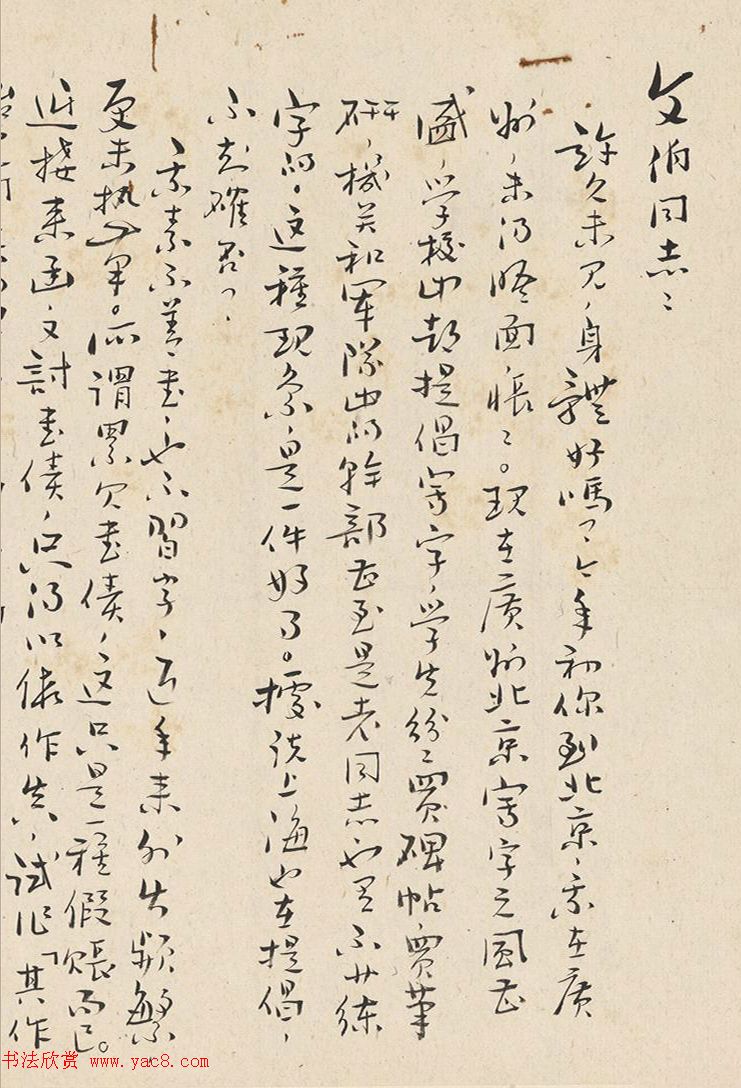 文伯同志：
許久未见，身體好嗎？今年初你到北京，我在廣
州，未得晤面，悵悵。现在廣州北京寫字之風甚
盛，学校中都提倡寫字，学生紛紛買碑帖，買筆
研，機关和軍隊中的幹部甚至是老同志也有不少練
字的，这種现象，是一件好事。據説上海也在提倡，
不知確否？
我素不善書，也不習字，近年来外出頻繁，
更未执筆。所謂累欠書債，这只是一種假賬而已。
近接来函，又討書債，只得以作，试作「其作
书法欣赏 www.yac8.com